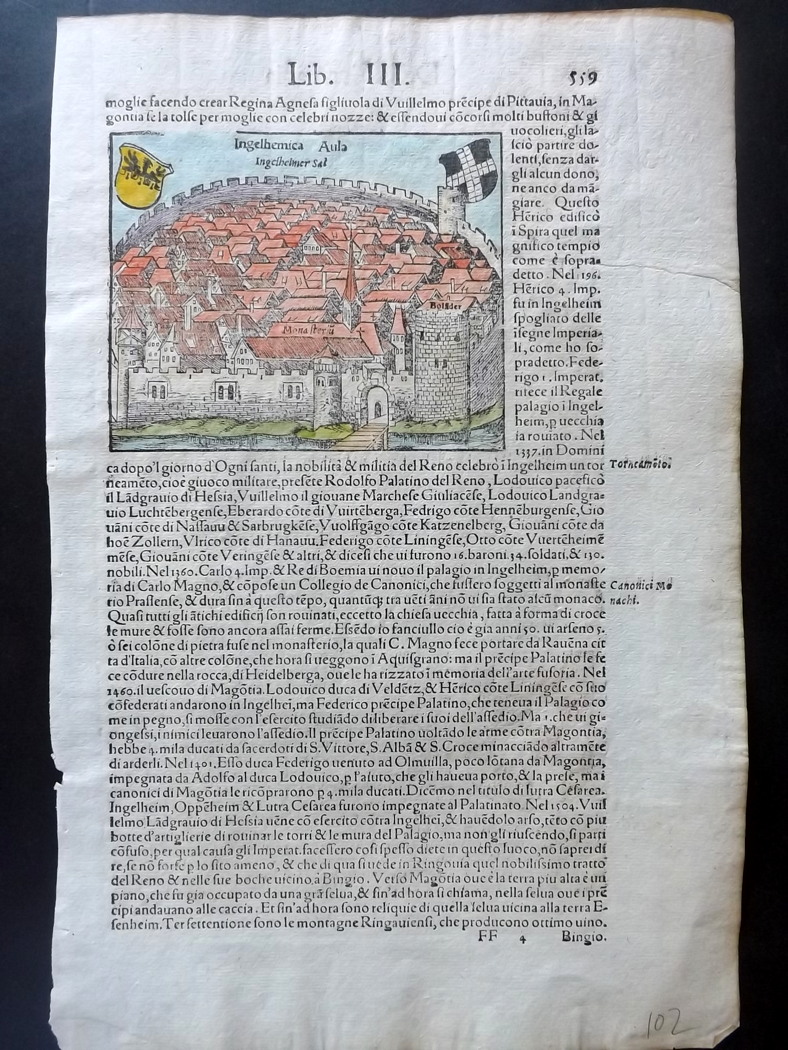 Lib. III. 559
moglie facendo crear Regina Agnesa figliuola di Vuillelmo prēcipe di Pittauia, in Ma-
gontia se la tolse per moglie con celebri nozze: & essendoui cōcorsi molti buffoni & gi
uocolieri, gli la-
sciò partire do-
lenti, senza dar-
gli alcun dono,
ne anco da mā-
giare. Questo
Hērico edificò
ī Spira quel ma
gnifico tempio
come è sopra-
detto. Nel 196.
Hērico 4. Imp.
fu in Ingelheim
spogliato delle
īsegne Imperia-
li, come ho so-
pradetto. Fede-
rigo 1. Imperat.
rifece il Regale
palagio ī Ingel-
heim, p uecchia
ia rouiato. Nel
1337. in Domini
Ingelhemica Aula
Ingelheimer Sal
Bolsder
Monasteriū
ca dopo'l giorno d'Ogni santi, la nobilità & militia del Reno celebrò ī Ingelheim un tor
neamēto, cioè giuoco militare, presēte Rodolfo Palatino del Reno, Lodouico pacificò
il Lādgrauio di Hessia, Vuillelmo il giouane Marchese Giuliacēse, Lodouico Landgra-
uio Luchtēbergense, Eberardo cōte di Vuirtēberga, Fedrigo cōte Hennēburgense, Gio
uāni cōte di Nassauu & Sarbrugkēse, Vuolffgāgo cōte Katzenelberg, Giouāni cōte da
hoē Zollern, Vlrico cōte di Hanauu. Federigo cōte Liningēse, Otto cōte Vuertēheimē
mēse, Giouāni cōte Veringēse & altri, & dicesi che ui furono 16. baroni. 34. soldati, & 130.
nobili. Nel 1360. Carlo 4. Imp. & Re di Boemia ui nouo il palagio in Ingelheim, p memo-
ria di Carlo Magno, & cōpose un Collegio de Canonici, che fussero soggetti al monaste
rio Praslense, & dura fin à questo tēpo, quantūq; tra uēti āni nō ui sia stato alcū monaco.
Quasi tutti gli ātichi edificij son rouinati, eccetto la chiesa uecchia, fatta à forma di croce
le mure & fosse sono ancora assai ferme. Essēdo io fanciullo cio è gia anni 50. ui arseno 5.
ò sei colōne di pietra fuse nel monasterio, la quali C. Magno fece portare da Rauēna cit
ta d'Italia, cō altre colōne, che hora si ueggono ī Aquisgrano: ma il prēcipe Palatino le fe
ce cōdure nella rocca, di Heidelberga, oue le ha rizzato ī mēmoria dell'arte fusoria. Nel
1460. il uescouo di Magōtia. Lodouico duca di Veldētz, & Hērico cōte Liningēse cō suo
cōfederati andarono in Ingelheī, ma Federico prēcipe Palatino, che teneua il Palagio co
me in pegno, si mosse con l'esercito studiādo di liberare i suoi dell'assedio. Ma 1. che ui gi-
ongessi, i nimici leuarono l'assedio. Il prēcipe Palatino uoltādo le arme cōtra Magontia,
hebbe 4. mila ducati da sacerdoti di S. Vittore, S. Albā & S. Croce minacciādo altramēte
di arderli. Nel 1401. Esso duca Federigo uenuto ad Olmuilla, poco lōtana da Magontia,
impegnata da Adolfo al duca Lodouico, p l'aiuto, che gli haueua porto, & la prese, ma i
canonici di Magōtia le ricōprarono p 4. mila ducati. Dicēmo nel titulo di lutra Cēsarea.
Ingelheim, Oppēheim & Lutra Cesarea furono impegnate al Palatinato. Nel 1504. Vuil
lelmo Lādgrauio di Hessia uēne cō esercito cōtra Ingelheī, & hauēdolo arso, tēto cō piu
botte d'artiglierie di rouinar le torri & le mura del Palagio, ma non gli riuscendo, si parti
cōfuso, per qual causa gli Imperat. facessero cosi spesso diete in questo luoco, nō saprei di
re, se nō forse p lo sito ameno, & che di qua si uede in Ringouia quel nobilissimo tratto
del Reno & nelle sue boche uicino, à Bingio. Verso Magōtia oue è la terra piu alta è un
piano, che fu gia occupato da una grā selua, & sin'ad hora si chiama, nella selua oue i prē
cipi andauano alle caccia. Et sin'ad hora sono reliquie di quella selua uicina alla terra E-
senheim. Ter settentione sono le montagne Ringauiensi, che producono ottimo uino.
FF 4 Bingio.
Torneamēto.
Canonici Mo
nachi.
102